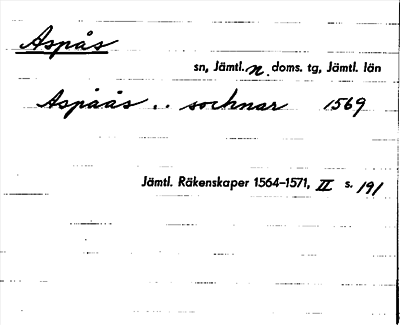 Aspås
sn, Jämtl. n. doms. tg, Jämtl. län
Aspåås .. sochnar 1569
Jämtl. Räkenskaper 1564–1571, II s. 191